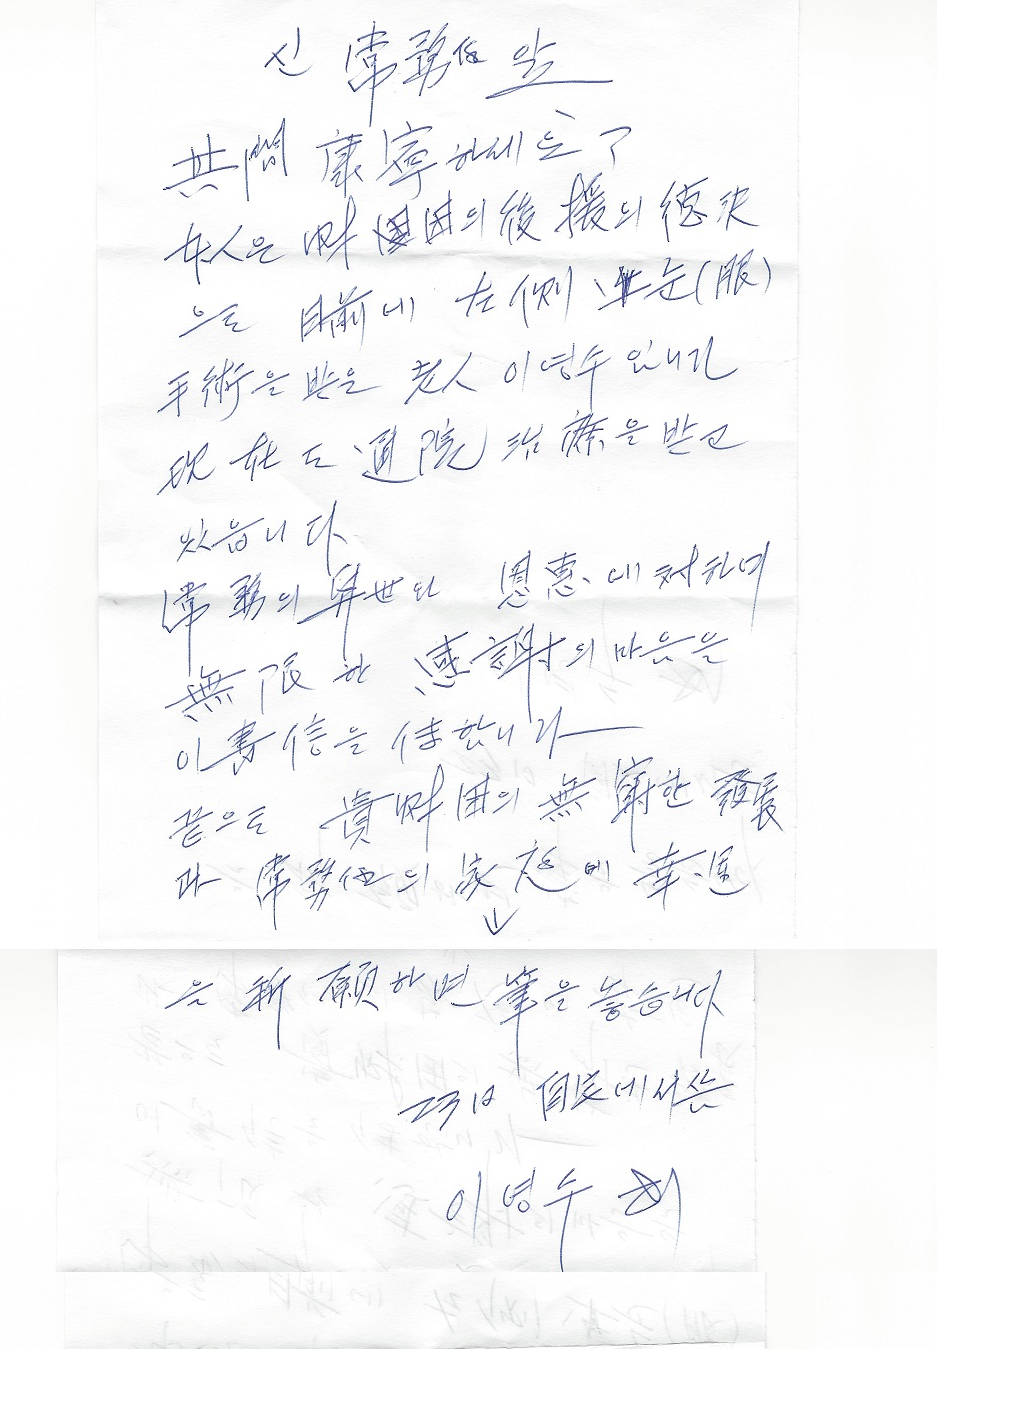 신 常務님 앞
共間 康寧하세요?
本人은 財団의 後援의 德沢
으로 目前에 左側 눈(眼)
手術을 받은 老人 이영수입니다
現在도 通院治療을 받고
있읍니다.
常務의 恩惠에 対하여
無限한 感謝의 마음을
이 書信을 합니다
끝으로 貴財団의 無窮한 發展
과 常務님의 家庭에 幸運
을 祈願하면 筆을 놓습니다
23日 自宅에서
이영수